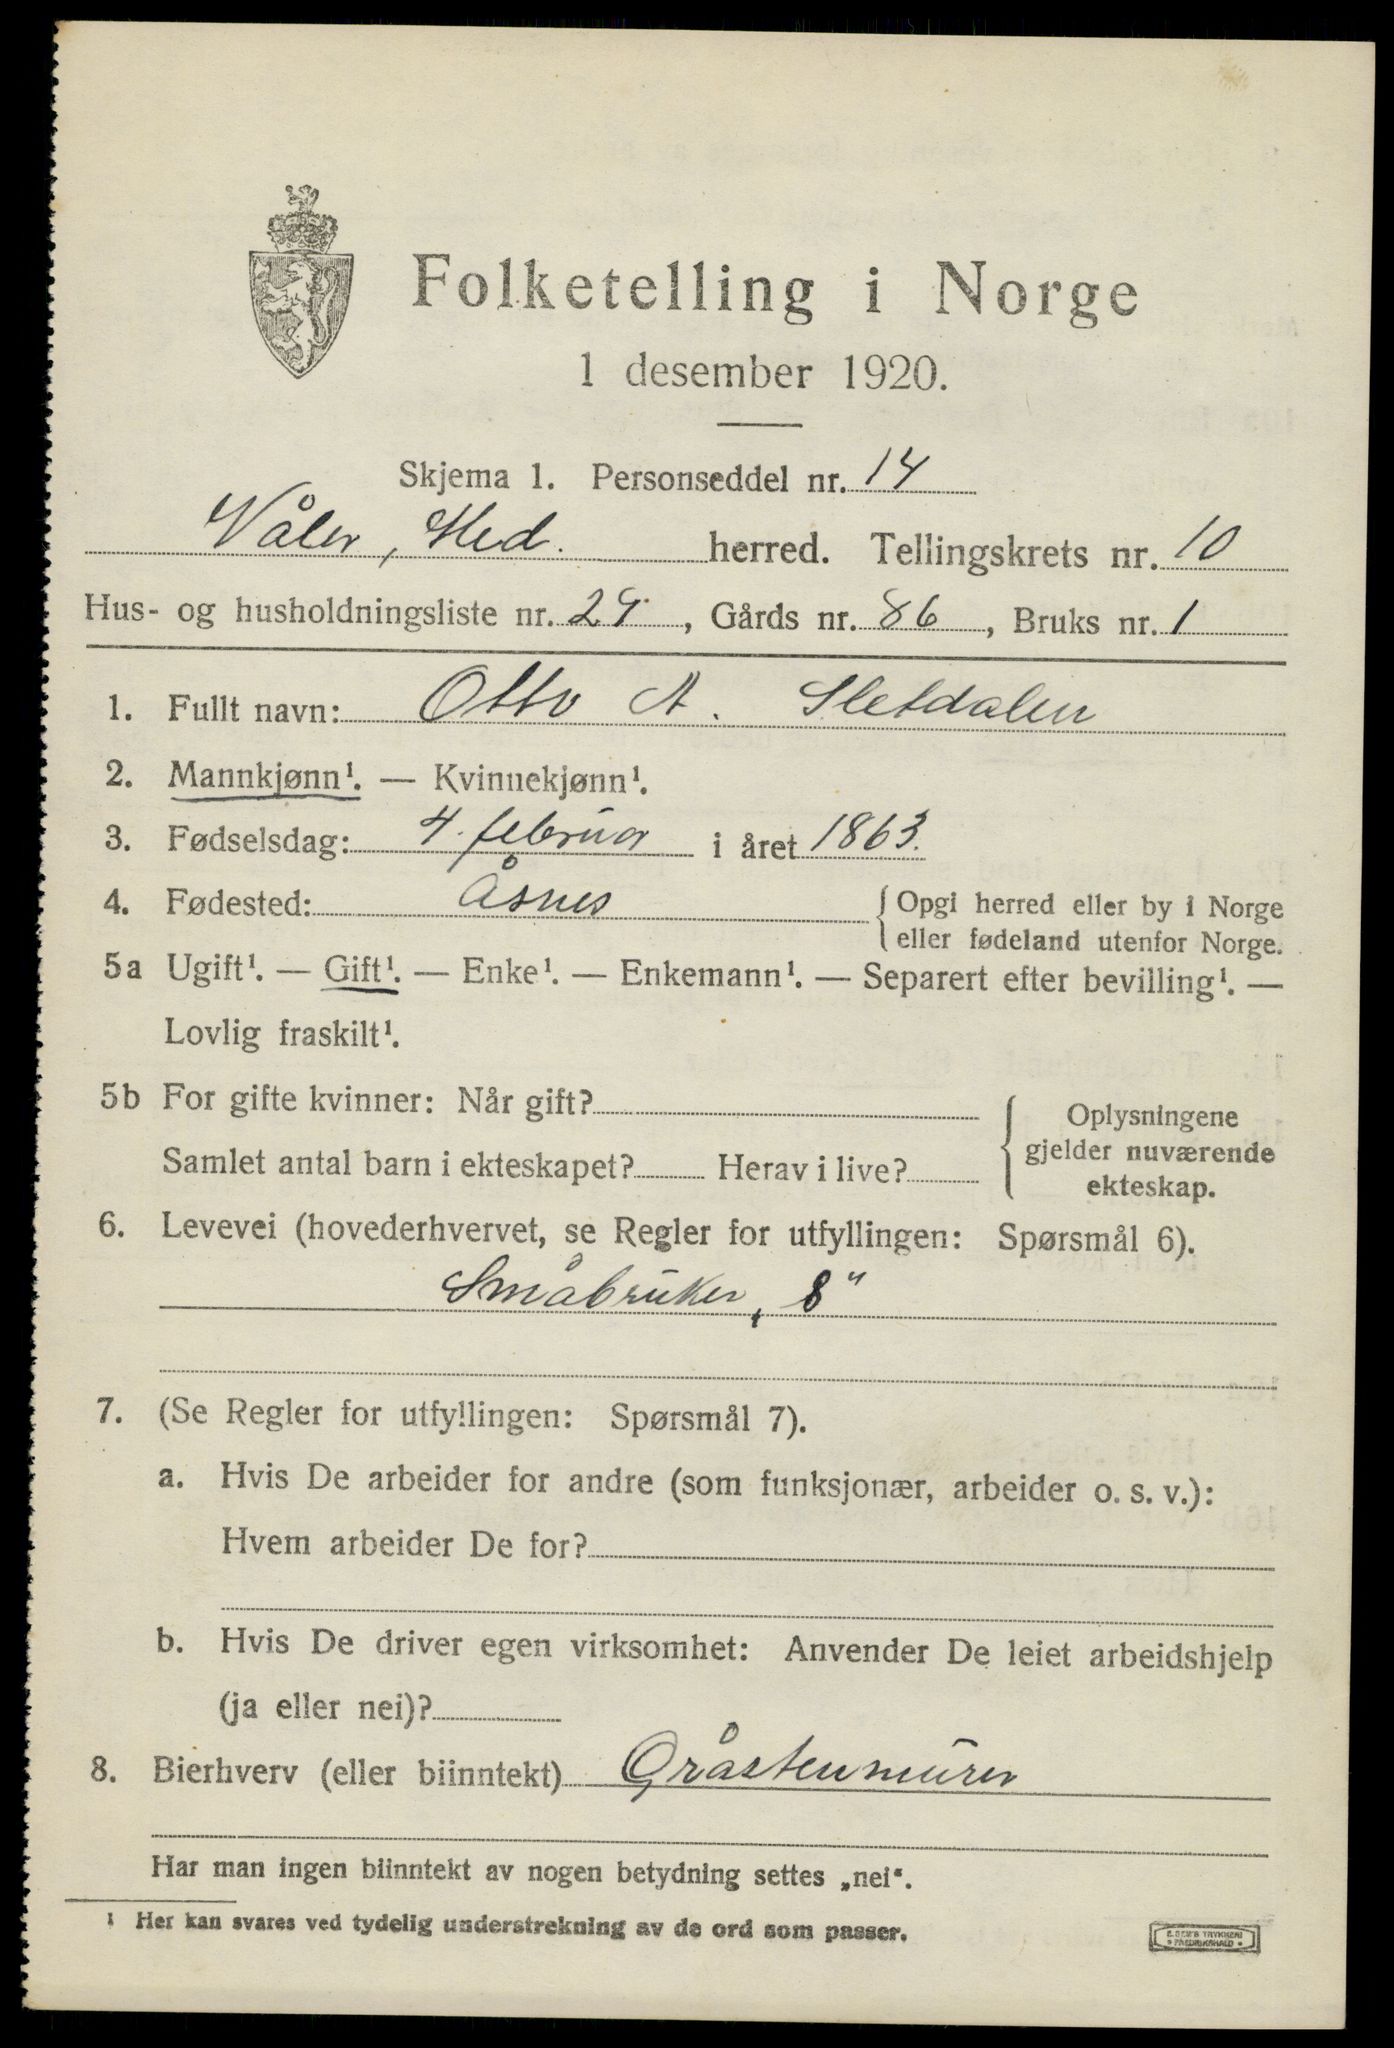 Folketelling i Norge
1 desember 1920.
Skjema 1. Personseddel nr. 14
Våler, Hed. herred. Tellingskrets nr. 10
Hus- og husholdningsliste nr. 29, Gårds nr. 86, Bruks nr. 1
1. Fullt navn: Otto A. Sletdalen
2. Mannkjønn¹. — Kvinnekjønn¹.
3. Fødselsdag: 4. februar i året 1863.
4. Fødested: Åsnes { Opgi herred eller by i Norge
eller fødeland utenfor Norge.
5a Ugift¹. — Gift¹. — Enke¹. — Enkemann¹. — Separert efter bevilling¹. —
Lovlig fraskilt¹.
5b For gifte kvinner: Når gift?
Samlet antal barn i ekteskapet? Herav i live?
Oplysningene
gjelder nuværende
ekteskap.
6. Levevei (hovederhvervet, se Regler for utfyllingen: Spørsmål 6).
Småbruker, 8"
7. (Se Regler for utfyllingen: Spørsmål 7).
a. Hvis De arbeider for andre (som funksjonær, arbeider o. s. v.):
Hvem arbeider De for?
b. Hvis De driver egen virksomhet: Anvender De leiet arbeidshjelp
(ja eller nei)?
8. Bierhverv (eller biinntekt) Gråstenmurer
Har man ingen biinntekt av nogen betydning settes „nei“.
¹ Her kan svares ved tydelig understrekning av de ord som passer.
E. SEM'S TRYKKERI
FREDRIKSHALD